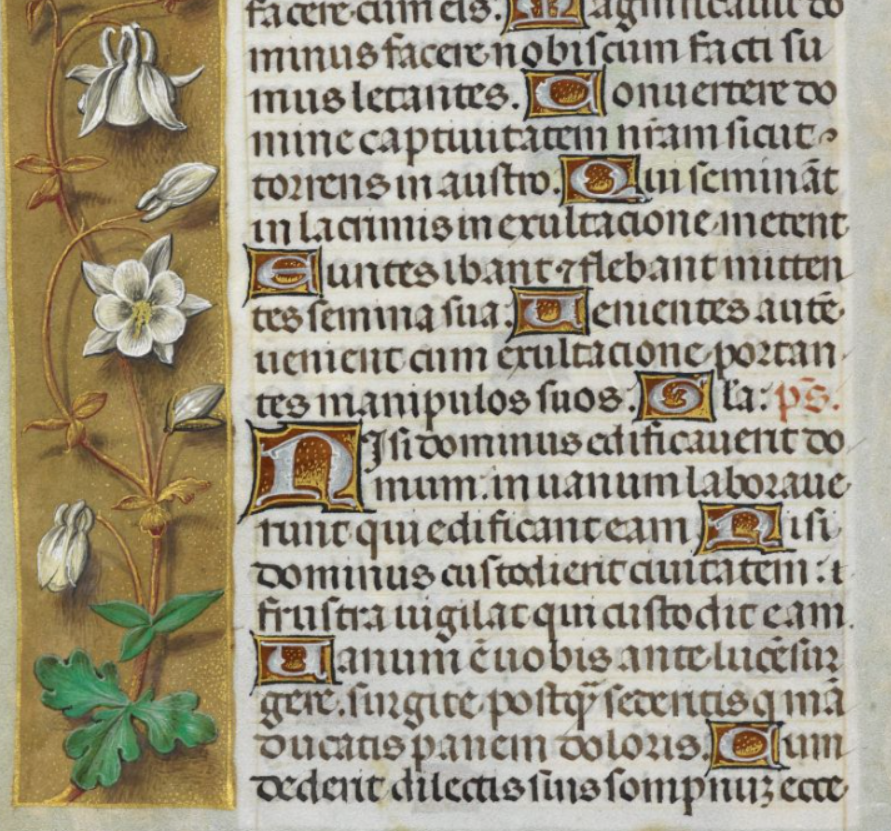 facere cum eis. Magnificauit do
minus facere nobiscum facti su
mus letantes. Conuertere do
mine captiuitatem nr̄am sicut
torrens in austro. Qui semināt
in lacrimis in exultacione metent
Euntes ibant ⁊ flebant mitten
tes semina sua. Uenientes autē
uenient cum exultacione portan
tes manipulos suos. Gl̄a. ps̄.
Nisi dominus edificauerit do
mum. in uanum laboraue
runt qui edificant eam Nisi
dominus custodierit ciuitatem: ı
frustra uigilat qui custodit eam.
Uanum ē uobis ante lucē sur
gere. surgite postq̄ sederitis q mā
ducatis panem doloris. Cum
dederit dilectis suis sompnuꝫ ecce